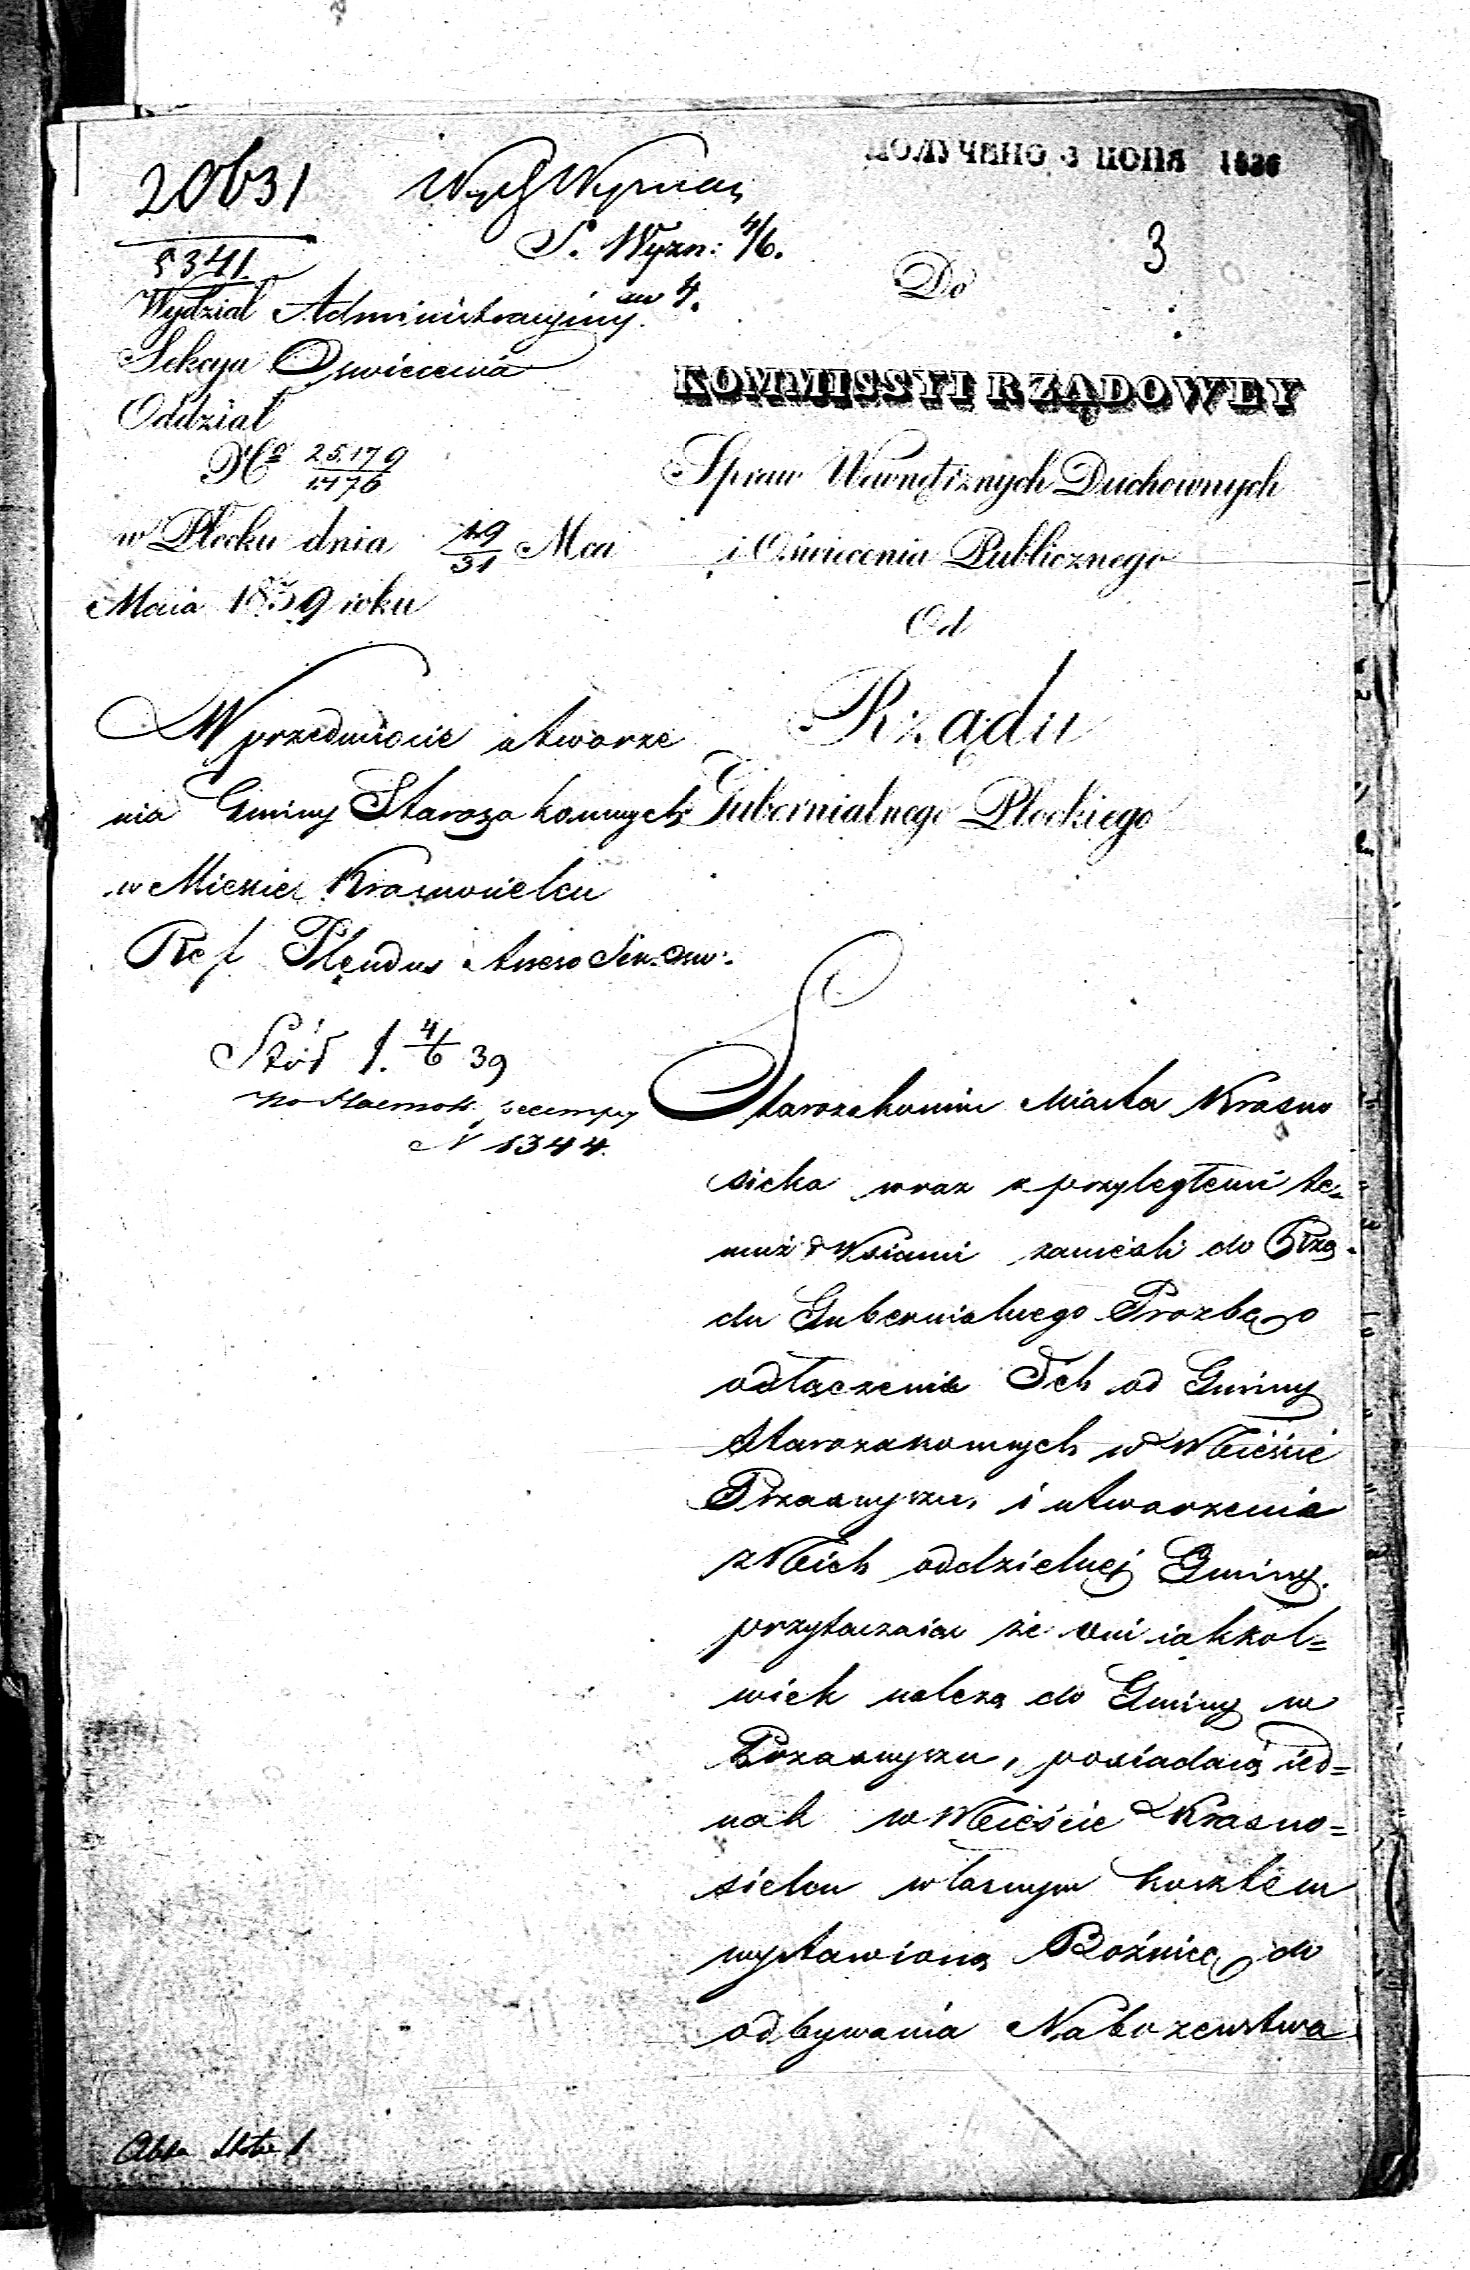 ПОЛУЧЕНО 3 ІЮНЯ 1839
20631
5341
S. Wyzn: 4/6.
3
Wydział Administracyiny.
Sekcya Oswiecenia
Oddział
No 25.179
1176
w Płocku dnia 19/31 Mca
Maia 1839 roku
Do
KOMMISSYI RZĄDOWEY
Spraw Wewnętrznych Duchownych
i Oświecenia Publicznego
Od
Rządu
Gubernialnego Płockiego
W przedmiocie utworze
nia Gminy Starozakonnych
w Miescie Krasnosielcu
Ref Plendus Assess
4/6 39
N 1344.
Starozakonni Miasta Krasno
sielca wraz z przyległemi te-
muż Wsiami zanieśli do Rzą-
du Gubernialnego Prozbę o
odłączenie Ich od Gminy
Starozakonnych w Mieście
Przasnyszu, i utworzenia
z Nich oddzielnej Gminy.
przytaczaiąc że oni iakkol=
wiek należą do Gminy w
Przasnyszu, posiadaią ied=
nak w Mieście Krasno=
sielcu własnym kosztem
wystawioną Bożnicę do
odbywania Nabożenstwa